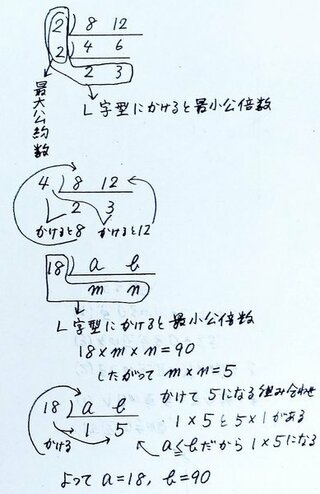 2) 8 12
2) 4 6
2 3
最大公約数
L字型にかけると最小公倍数
4) 8 12
2 3
かけると8 かけると12
18) a b
m n
L字型にかけると最小公倍数
18×m×n=90
したがって m×n=5
かけて5になる組み合わせ
1×5と5×1がある
a≦bだから1×5になる
18) a b
1 5
かける
よって a=18, b=90